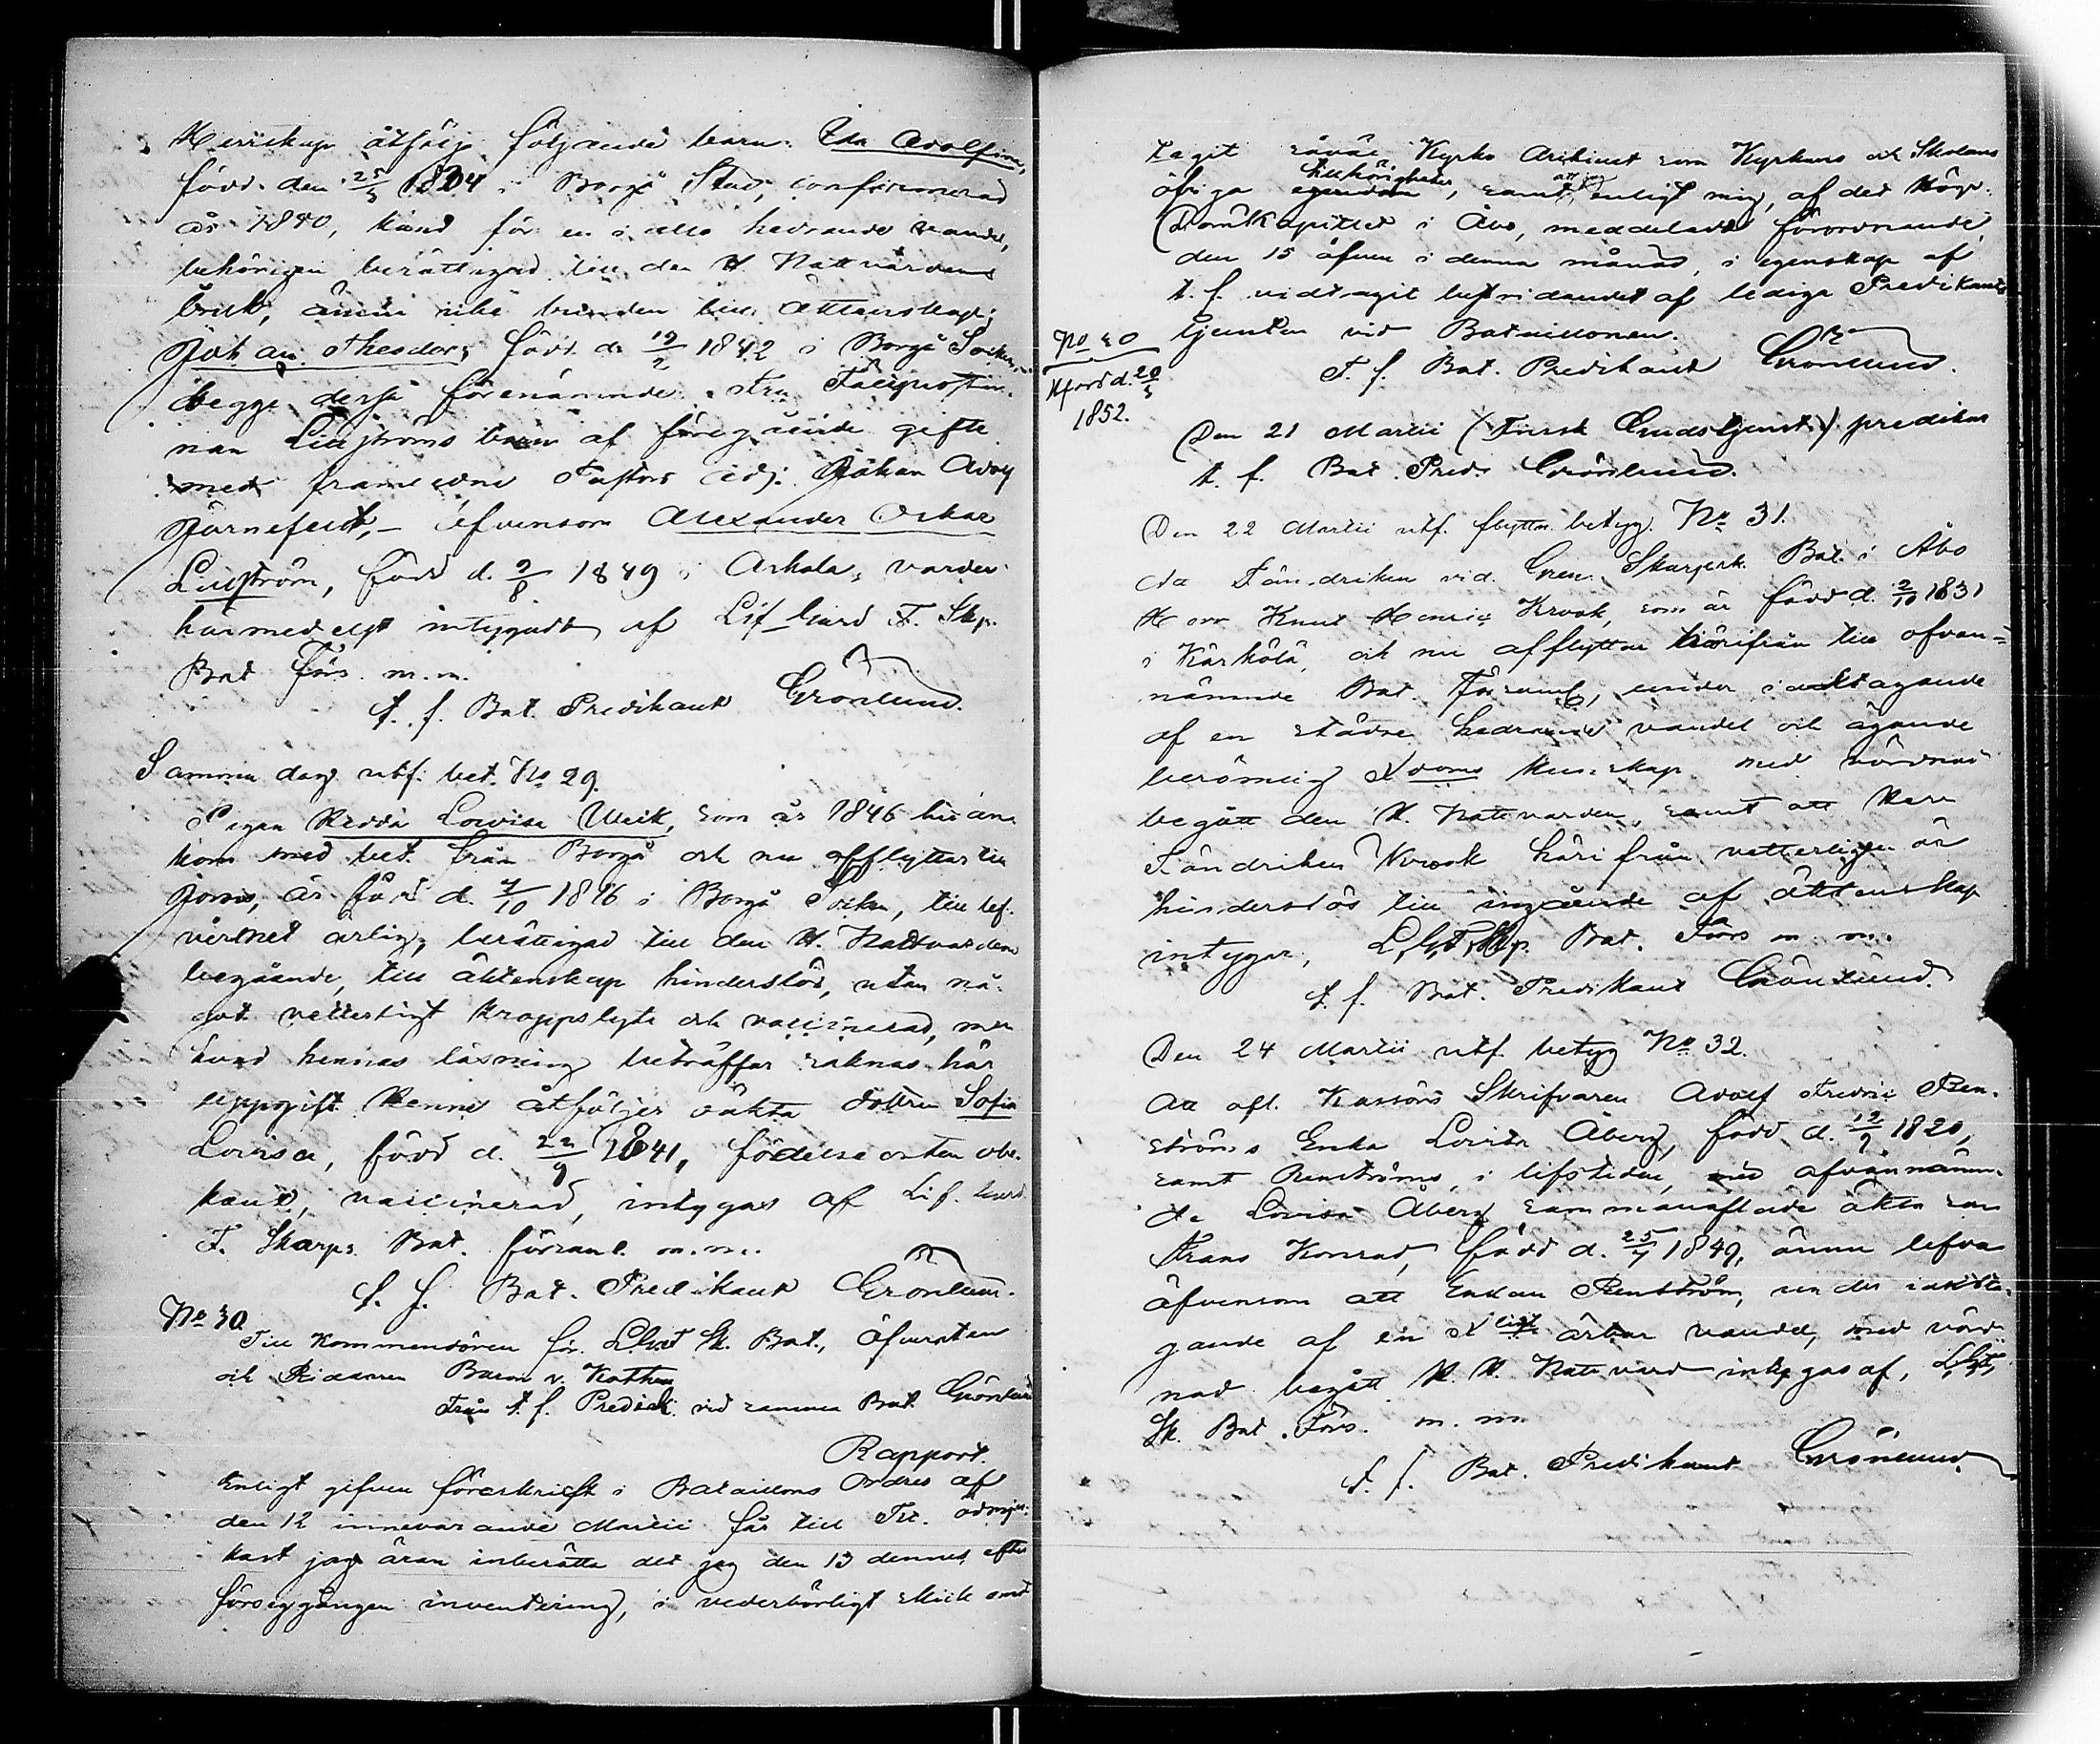 Herrskap åtfölje följande barn: Ida Adolfina,
född den 25/3 1834 i Borgå Stad, confirmerad
år 1840, känd för en i allo hedrande vandel,
behörigen berättigad till den H. Nattvardens
bruk, ännu icke bunden till äktenskap;
Johan Theodor, född d. 19/2 1842 i Borgå Socken,
begge dessa förenämnde Fru
nan Liljströms barn af föregående gifte
med framledne Pastors adj. Johan Adolf
Järnefelt, – äfvensom Alexander Oskar
Liljström, född d. 9/8 1849 i Askola, varder
härmedelst intygadt af Lif Gard F. Skp.
Bat Förs. m.m.
t. f. Bat. Predikant Grönlund.
Samma dag utf. bet. No 29.
Pigan Hedda Lovisa Weik, som år 1846 hit an-
kom med bet. från Borgå och nu afflyttar till
Jorois, är född d. 4/10 1816 i Borgå Socken, till lef-
vernet ärlig, berättigad till den H. Nattvardens
begående, till äktenskap hinderslös, utan nå-
got vetterligt kroppslyte och vaccinerad, men
hvad hennes läsning beträffar saknas här
uppgift. Henne åtföljer oäkta dottren Sofia
Lovisa, född d. 22/9 1841, födelse orten obe-
kant, vaccinerad, intygas af Lif. Gard.
F. Skarps. Bat. församl. m.m.
t. f. Bat. Predikant Grönlund.
No 30.
Till Kommendören för L.G. F. Sk. Bat., Öfversten
och Riddaren Baron v. Kothen
Från t. f. Predik. vid samma Bat. Grönlund
Rapport.
Enligt gifven föreskrift i Bataillons Ordres af
den 12 innevarande Martii får till Tit. ödmju-
kast jag äran inberätta det jag den 13 dennes efter
försiggången inventering, i vederbörligt skick emot-
tagit såväl Kyrko Archivet som Kyrkans och Skolans
öfriga egendom tillhörigheter, samt att jag enligt mig, af det Högv.
Domkapitlet i Åbo, meddeladt förordnande
den 15 äfven i denna månad, i egenskap af
t. f. vidtagit bestridandet af lediga Predikants
tjensten vid Bataillonen.
T. f. Bat. Predikant Grönlund.
No 20
Hfors d. 20/3
1852.
Den 21 Martii (Finsk Gudstjenst) predikas
t. f. Bat. Pred. Grönlund.
Den 22 Martii utf. flyttn. betyg. No 31.
Att Fändriken vid Gren. Skarpsk. Bat. i Åbo
Herr Knut Henric Krook, som är född d. 2/10 1831
i Kärkölä, och nu afflyttar härifrån till ofvan-
nämnde Bat. Församl, under iakttagande
af en städse hedrande vandel och ägande
berömlig Xdoms kunskap med vördnad
begått den H. Nattvarden, samt att Herr
Fändriken Krook härifrån vetterligen är
hinderslös till ingående af äktenskap
intygar, L.G.F. Skp. Bat. Förs m. m.
t. f. Bat. Predikant Grönlund.
Den 24 Martii utf. betyg No 32.
Att afl. Kassörs Skrifvaren Adolf Fredric Ren-
ströms Enka Lovisa Åberg, född d. 12/9 1820,
samt Renströms, i lifstiden, med ofvannämn-
da Lovisa Åberg sammanaflade äkta son
Frans Konrad, född d. 25/7 1849, ännu lefva
äfvensom att Enkan Renström, under iaktta-
gande af en Xligt ärbar vandel, med vörd-
nad begått H. H. Nattvard intygas af, L.G.F.
Sk. Bat. Förs. m. m.
t. f. Bat. Predikant Grönlund.